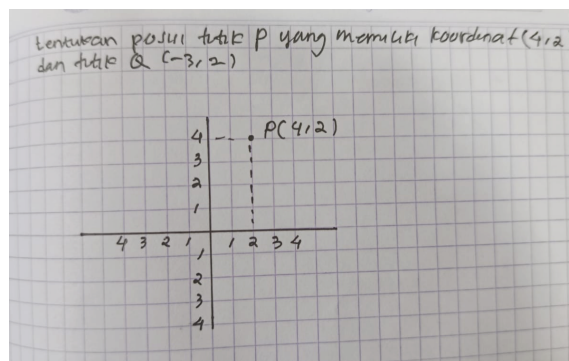 tentukan posisi titik P yang memiliki koordinat (4,2
dan titik Q (-3,2)
4 P(4,2)
3
2
1
4 3 2 1 1 2 3 4
1
2
3
4